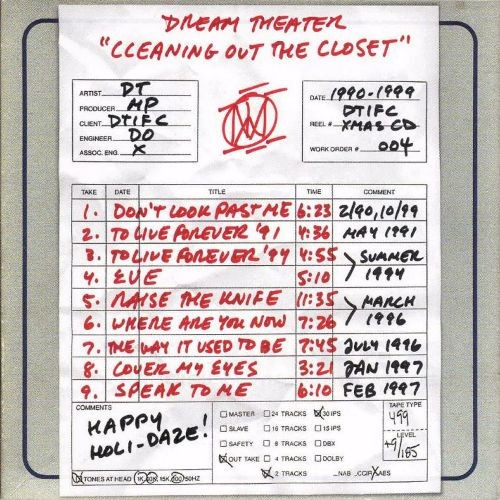 DREAM THEATER
"CLEANING OUT THE CLOSET"
ARTIST DT
PRODUCER MP
CLIENT DTIFC
ENGINEER DO
ASSOC. ENG. X
DATE 1990-1999
DTIFC
REEL # XMAS CD
WORK ORDER # 004
TAKE DATE TITLE TIME COMMENT
1. DON'T LOOK PAST ME 6:23 2/90, 10/99
2. TO LIVE FOREVER '91 4:36 MAY 1991
3. TO LIVE FOREVER '94 4:55 SUMMER
4. EVE 5:10 1994
5. RAISE THE KNIFE 11:35 MARCH
6. WHERE ARE YOU NOW 7:26 1996
7. THE WAY IT USED TO BE 7:45 JULY 1996
8. COVER MY EYES 3:21 JAN 1997
9. SPEAK TO ME 6:10 FEB 1997
COMMENTS
HAPPY
HOLI-DAZE!
MASTER 24 TRACKS 30 IPS
SLAVE 16 TRACKS 15 IPS
SAFETY 8 TRACKS DBX
OUT TAKE 4 TRACKS DOLBY
2 TRACKS NAB CCIR AES
TAPE TYPE
499
LEVEL
+9/185
TONES AT HEAD 1K, 10K, 15K, 100, 50HZ